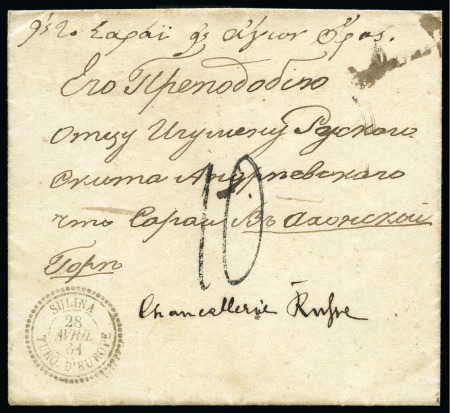 εἰς το Σαράϊ εἰς Ἅγιον Ὄρος.
Его Преподобію
отцу Игумену Рускаго
Скита Андреевскаго
что Сарай въ Аѳонской
Горѣ
10
Chancellerie Russe
SULINA
28
AVRIL
61
TURQ. D'EUROPE